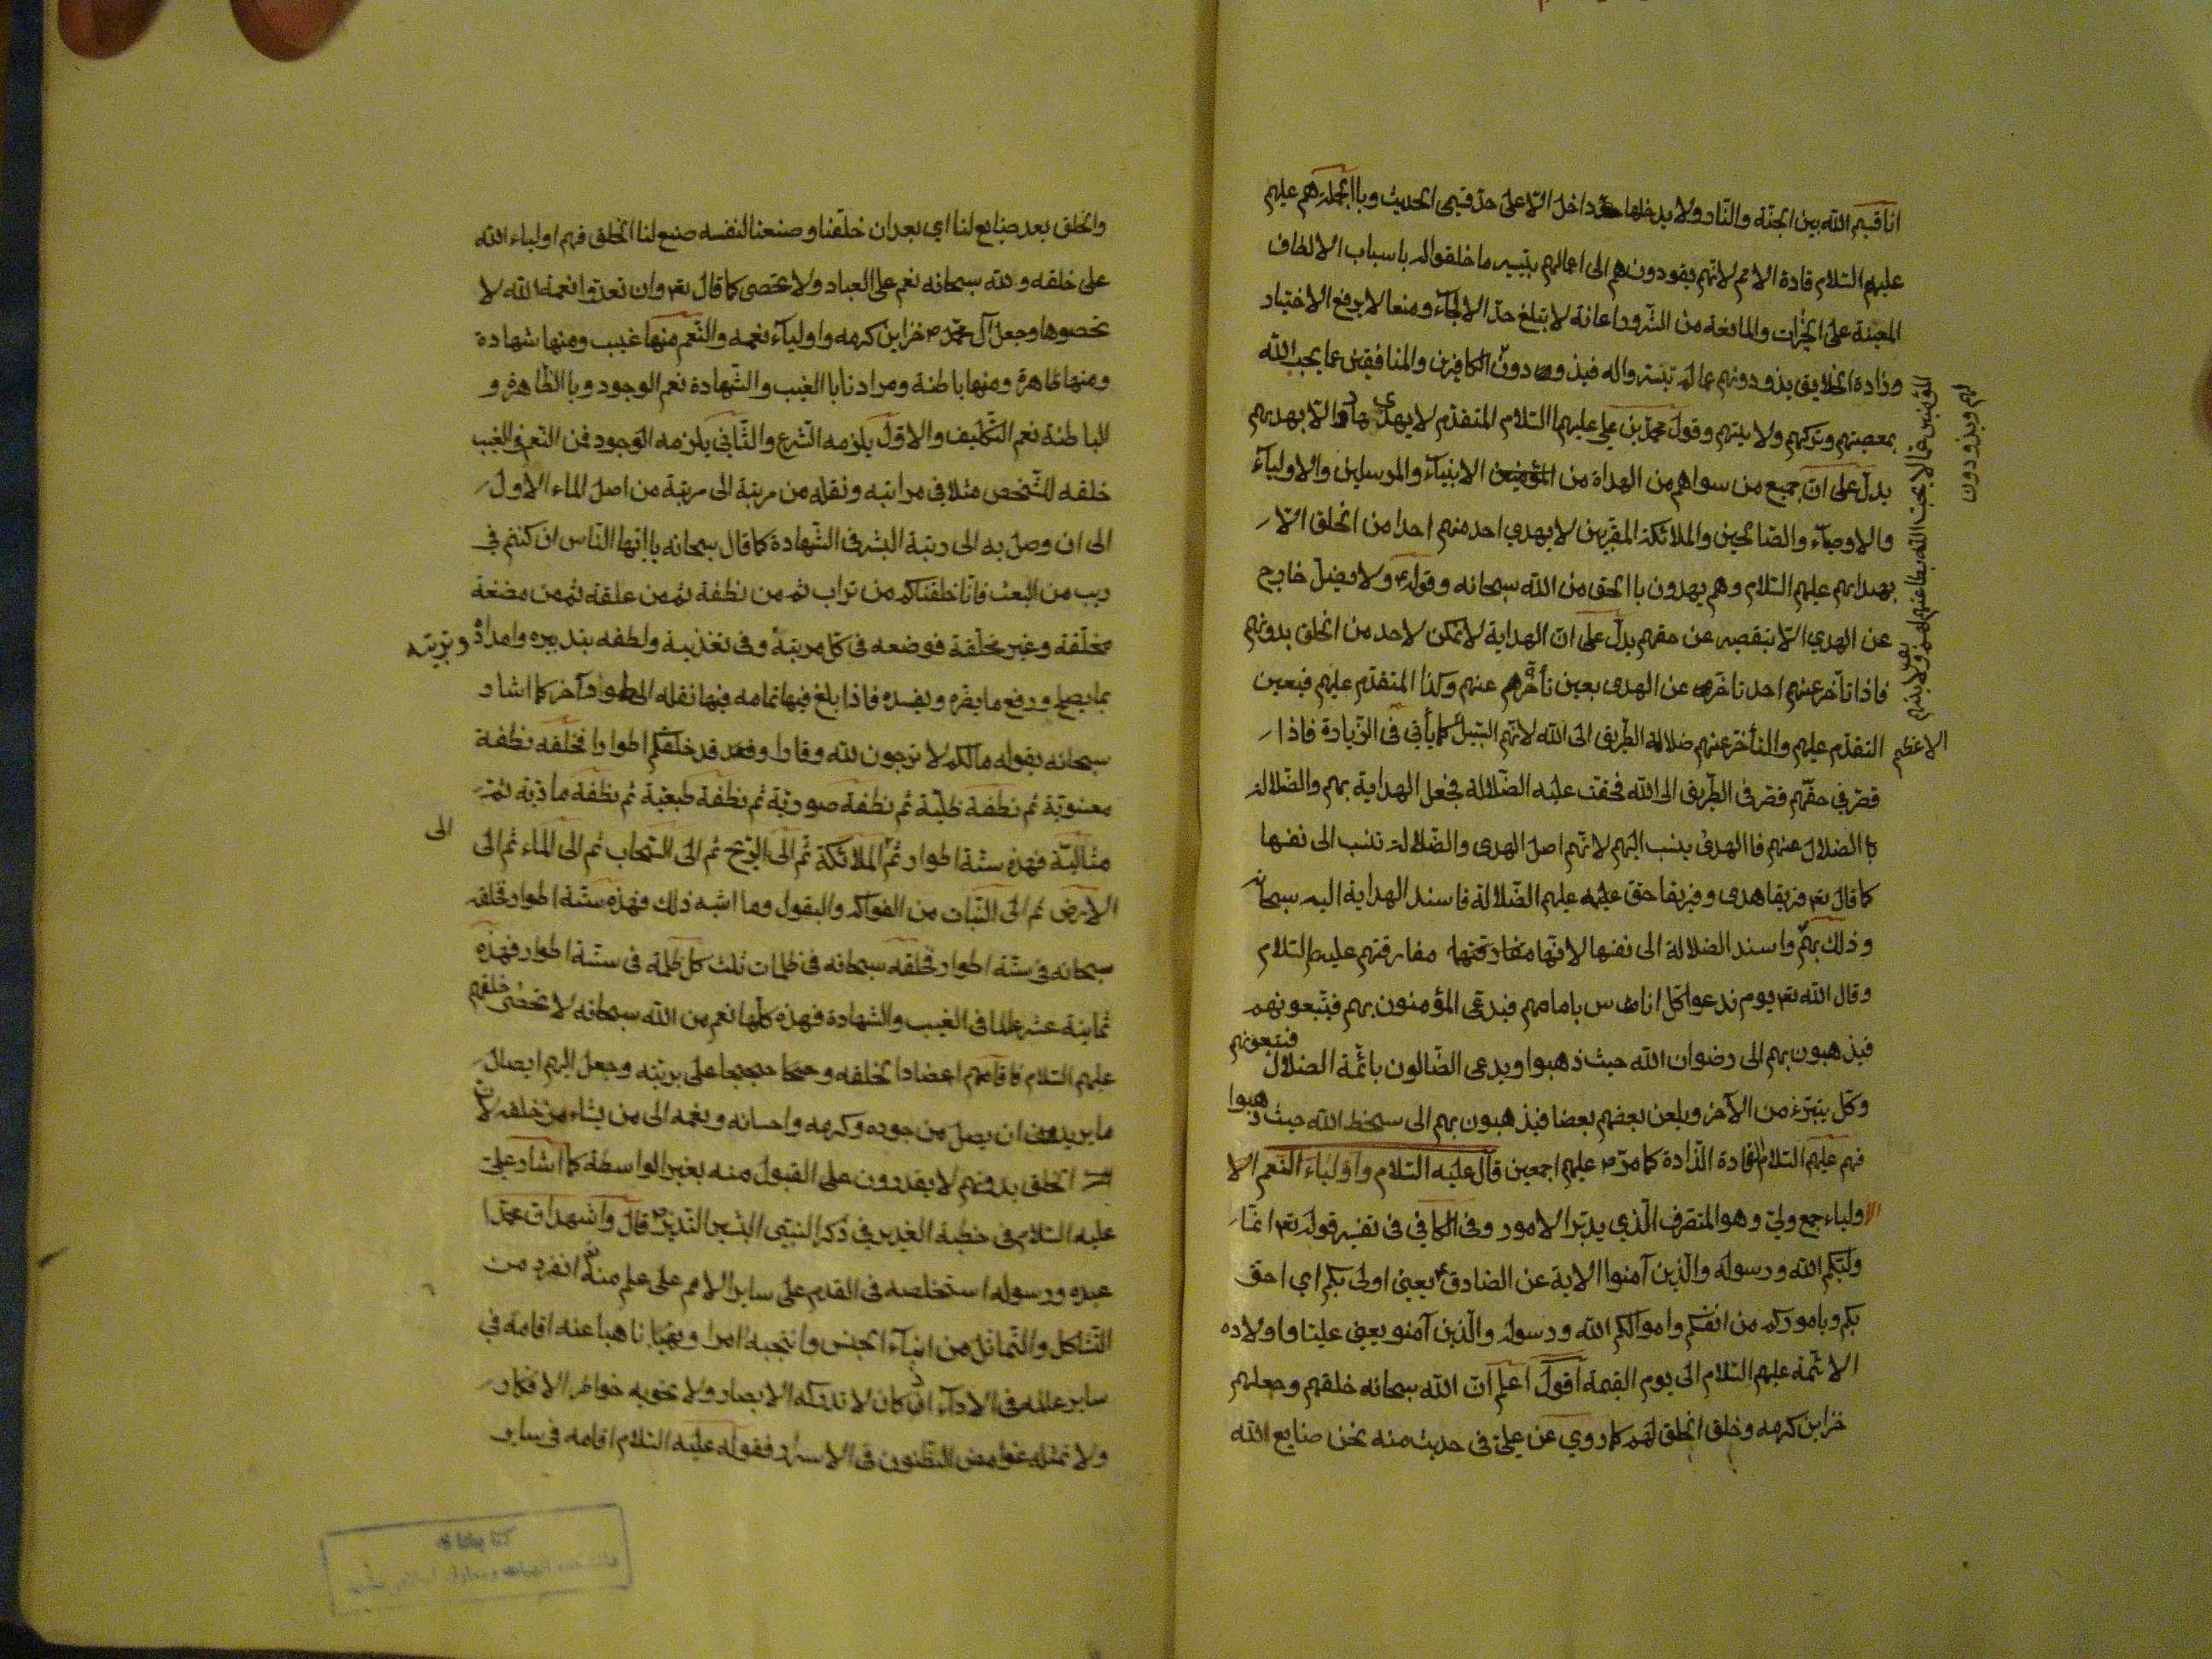 انا قسيم الله بين الجنة والنار ولا يدخلها داخل الا على حد قسمي الحديث وبالجملة هم عليهم
عليهم السلام قادة الامم لانهم يقودونهم الى اعمالهم بتيسير ما خلقوا له باسباب الالطاف
المعينة على الخيرات والمانعة من الشرور اعانة لا تبلغ حد الالجاء ومنعا لا يرفع الاختيار
وذادة الخلايق يذودونهم عما لم تيسروا له فيذودون الكافرين والمنافقين عما يحب الله
بمعصيتهم وتركهم ولايتهم وقول محمد بن علي عليهما السلام المتقدم لا يهدي هاد الا بهديهم
يدل على ان جميع من سواهم من الهداة من الانبياء والمرسلين والاولياء
والاوصياء والصالحين والملائكة المقربين لا يهدي احد منهم احدا من الخلق الا
بهداهم عليهم السلام وهم يهدون بالحق من الله سبحانه وقوله ع ولا يضل خارج
عن الهدي الا بتقصير عن حقهم يدل على ان الهداية لا تمكن لاحد من الخلق بدونهم
فاذا تأخر عنهم احد تأخر عن الهدى بعين تأخرهم عنهم وكذا المتقدم عليهم فبعين
التقدم عليهم والتأخر عنهم ضلالة الطريق الى الله لانهم السبيل كما يأتي في الزيادة فاذا
قصر في حقهم قصر في الطريق الى الله فحقت عليه الضلالة فجعل الهداية بهم والضلالة
بالضلال عنهم فالهدى ينسب اليهم لانهم اصل الهدى والضلالة تنسب الى نفسها
كما قال تعـ فريقا هدى وفريقا حق عليهم الضلالة فاسند الهداية اليه سبحانه
وذلك بهم واسند الضلالة الى نفسها لانها مفارقتهم عليهم السلام
وقال الله تعـ يوم ندعوا كل اناس بامامهم فيدعى المؤمنون بهم فيتبعونهم
فيذهبون بهم الى رضوان الله حيث ذهبوا ويدعى الضالون بائمة الضلال فيتبعونهم
وكل يتبرء من الآخر ويلعن بعضهم بعضا فيذهبون بهم الى سخط الله حيث ذهبوا
فهم عليهم السلام القادة الذادة كما مر ص عليهم اجمعين قال عليه السلام واولياء النعم
الاولياء جمع ولي وهو المتصرف الذي يدبر الامور وفي الكافي في تفسير قوله تعـ انما
وليكم الله ورسوله والذين آمنوا الاية عن الصادق ع يعني اولى بكم اي احق
بكم وباموركم من انفسكم واموالكم الله ورسوله والذين آمنو يعني عليا واولاده
الائمة عليهم السلام الى يوم القيمة اقول اعلم ان الله سبحانه خلقهم وجعلهم
خزاين كرمه وخلق الخلق لهم كما روي عن علي في حديث منه نحن صنايع الله
لهم ويذودون
المؤمنين عما لا يحب الله بطاعتهم لهم وولايتهم
الاعظم
والخلق بعد صنايع لنا اي بعد ان خلقنا وصنعنا لنفسه صنع لنا الخلق فهم اولياء الله
على خلقه ولله سبحانه نعم على العباد ولا تحصى كما قال تعـ وان تعدوا نعمة الله لا
تحصوها وجعل آل محمد ص خزاين كرمه واولياء نعمه والنعم منها غيب ومنها شهادة
ومنها ظاهرة ومنها باطنة ومرادنا بالغيب والشهادة نعم الوجود وبالظاهرة و
الباطنة نعم التكليف والاول يلزمه الشرع والثاني يلزمه الوجود فمن النعم في الغيب
خلقه للشخص مثلا في مراتبه ونقله من مرتبة الى مرتبة من اصل الماء الاول
الى ان وصل به الى رتبة البشر في الشهادة كما قال سبحانه يا ايها الناس ان كنتم في
ريب من البعث فانا خلقناكم من تراب ثم من نطفة ثم من علقة ثم من مضغة
مخلقة وغير مخلقة فوضعه في كل مرتبة وفي تغذيته ولطفه بتدبيره وامداده وتربيته
بما يصلح ودفع ما يضره ويفسده فاذا بلغ فيها تمامه فيها نقله الى طور آخر كما اشار
سبحانه بقوله ما لكم لا ترجون لله وقارا وقد خلقكم اطوارا فخلقه نطفة
معنوية ثم نطفة ظلية ثم نطفة صورية ثم نطفة طبيعية ثم نطفة مادية ثم
مثالية فهذه ستة اطوار ثم الى الملائكة ثم الى الريح ثم الى السحاب ثم الى الماء ثم الى
الارض ثم الى النبات من الفواكه والبقول وما اشبه ذلك فهذه ستة اطوار خلقه
سبحانه في ستة اطوار فخلقه سبحانه في ظلمات ثلث كل ظلمة في ستة اطوار فهذه
ثمانية عشر عالما في الغيب والشهادة فهذه كلها نعم من الله سبحانه لا تحصى خلقهم
عليهم السلام فاقامهم اعضادا لخلقه وحججا على بريته وجعل اليهم ايصال
ما يريد ان يصل من جوده وكرمه واحسانه ونعمه الى من يشاء من خلقه لان
الخلق بدونهم لا يقدرون على القبول منه بغير الواسطة كما اشار علي
عليه السلام في خطبة الغدير في ذكر النبي البشير النذير ص قال واشهد ان محمدا
عبده ورسوله استخلصه في القدم على ساير الامم على علم منه انفرد من
التشاكل والتماثل من ابناء الجنس وانتجبه امرا وناهيا عنه اقامه في
ساير عالمه في الاداء اذ كان لا تدركه الابصار ولا تحويه خواطر الافكار
ولا تمثله غوامض الظنون في الاسرار فقوله عليه السلام اقامه في ساير